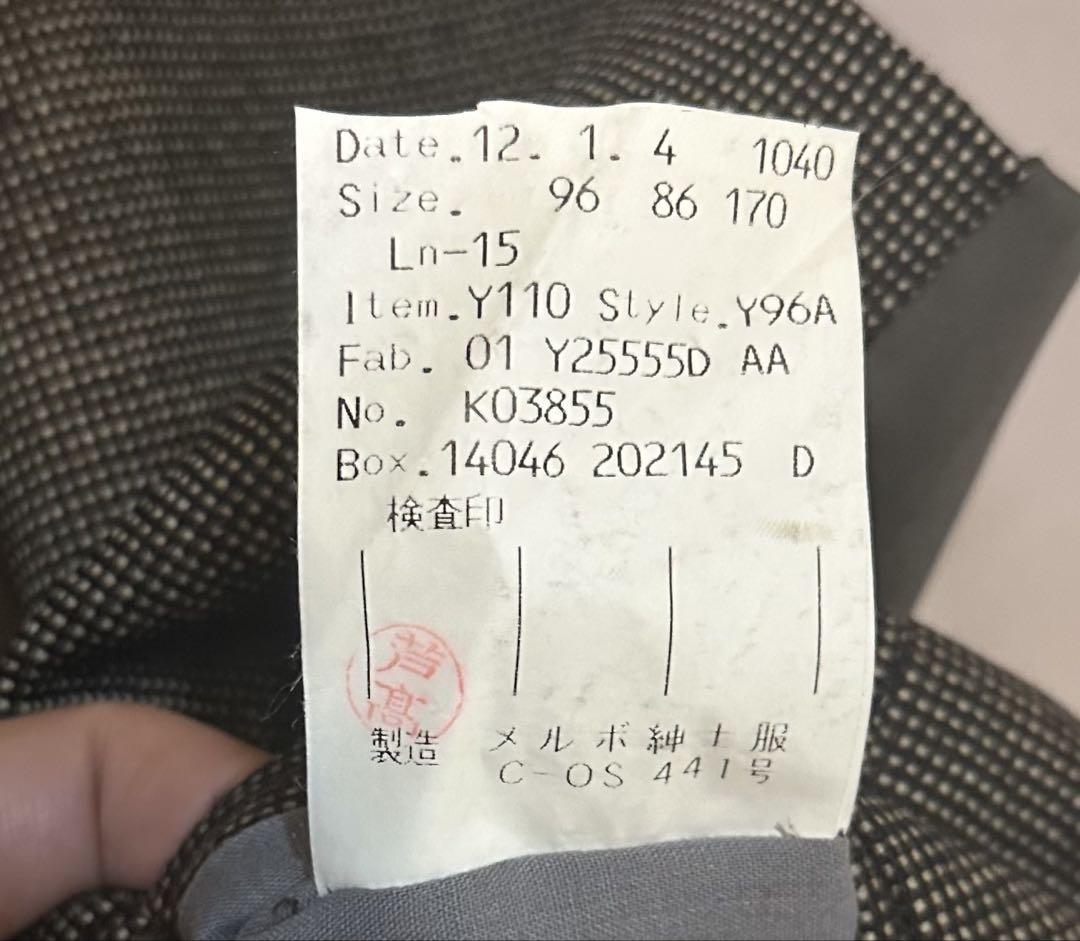 Date.12. 1. 4 1040
Size. 96 86 170
Ln-15
Item.Y110 Style.Y96A
Fab. 01 Y25555D AA
No. K03855
Box.14046 202145 D
検査印
芦高
製造 メルボ紳士服
C-OS 441号